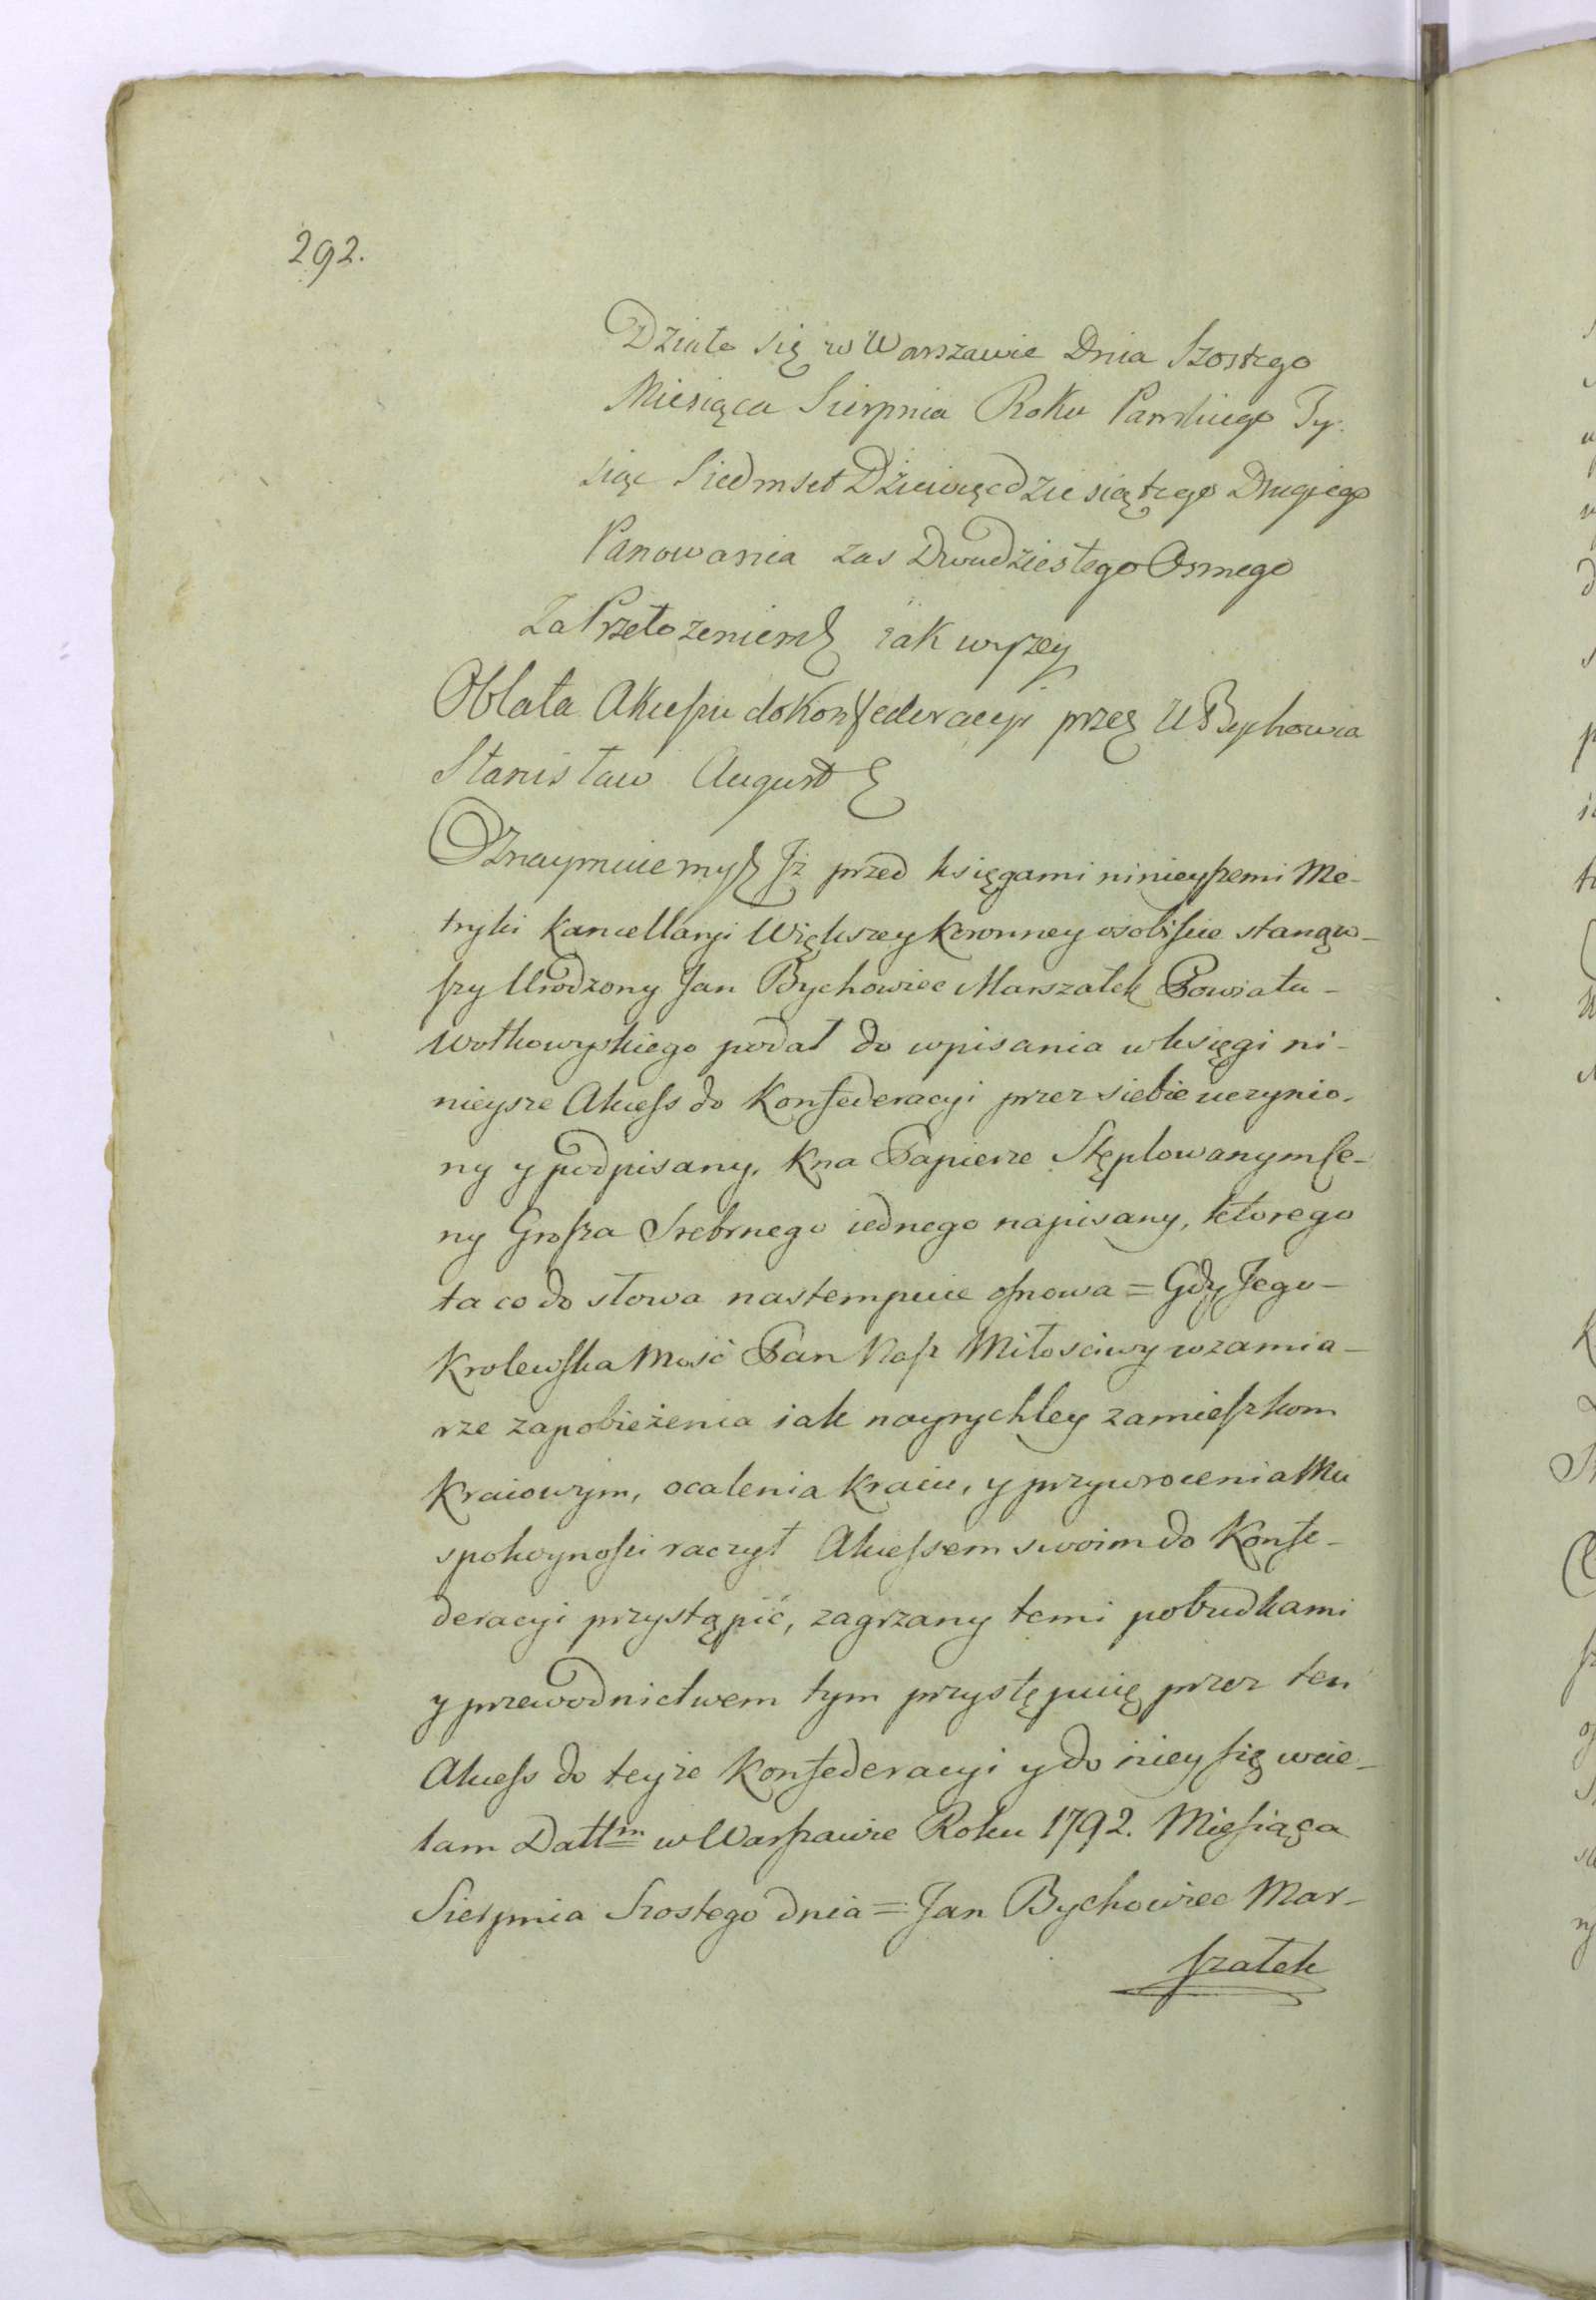 292.
Działo się w Warszawie Dnia Szostego
Miesiąca Sierpnia Roku Pańskiego Ty-
siąc Siedmset Dziewięćdziesiątego Drugiego
Panowania zas Dwudziestego Osmego
Za Przełożeniem iak wyszey
Oblata Akcessu do Konfederacyi przez U Bychowca
Stanisław August
Oznaymuiemy Jż przed księgami ninieyszemi Me-
tryki Kancellaryi Większey Koronney osobiscie stanąw-
szy Urodzony Jan Bychowiec Marszałek Powiatu-
Wołkowyskiego podał do wpisania w księgi ni-
nieysze Akcess do Konfederacyi przez siebie uczynio-
ny y podpisany, Kna Papierze Stęplowanym Ce-
ny Grosza Srebrnego iednego napisany, ktorego
ta co do słowa nastempuie osnowa = Gdy Jego-
Krolewska Mość Pan Nasz Miłosciwy w zamia-
rze zapobieżenia iak nayrychley zamieszkom
Kraiowym, ocalenia Kraiu, y przywrocenia Mu
spokoynosci raczył Akcessem swoim do Konfe-
deracyi przystąpić, zagrzany temi pobudkami
y przewodnictwem tym przystępuię przez ten
Akcess do teyże Konfederacyi y do niey się wcie-
lam Datt<sup>m</sup> w Warszawie Roku 1792. Miesiąca
Sierpnia Szostego dnia = Jan Bychowiec Mar-
szałek